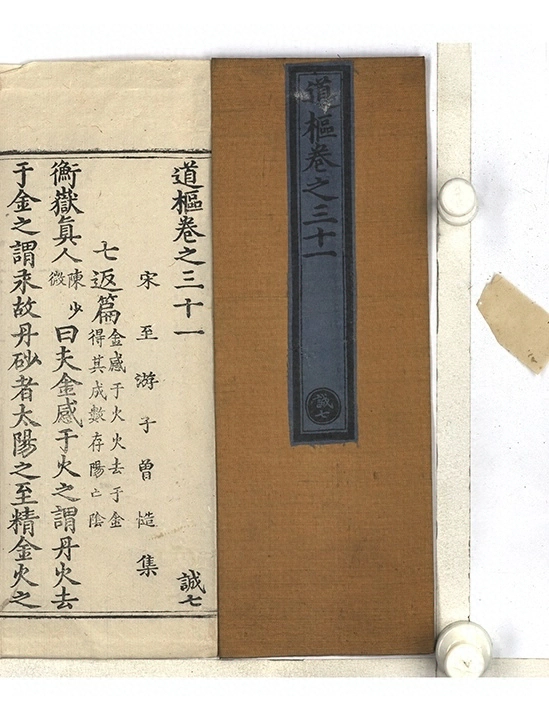 道樞卷之三十一
誠七
道樞卷之三十一 誠七
宋至游子曾慥集
七返篇 金感于火火去于金
得其成數存陽亡陰
衡嶽眞人 陳少
微 曰夫金感于火之謂丹火去
于金之謂汞故丹砂者太陽之至精金火之